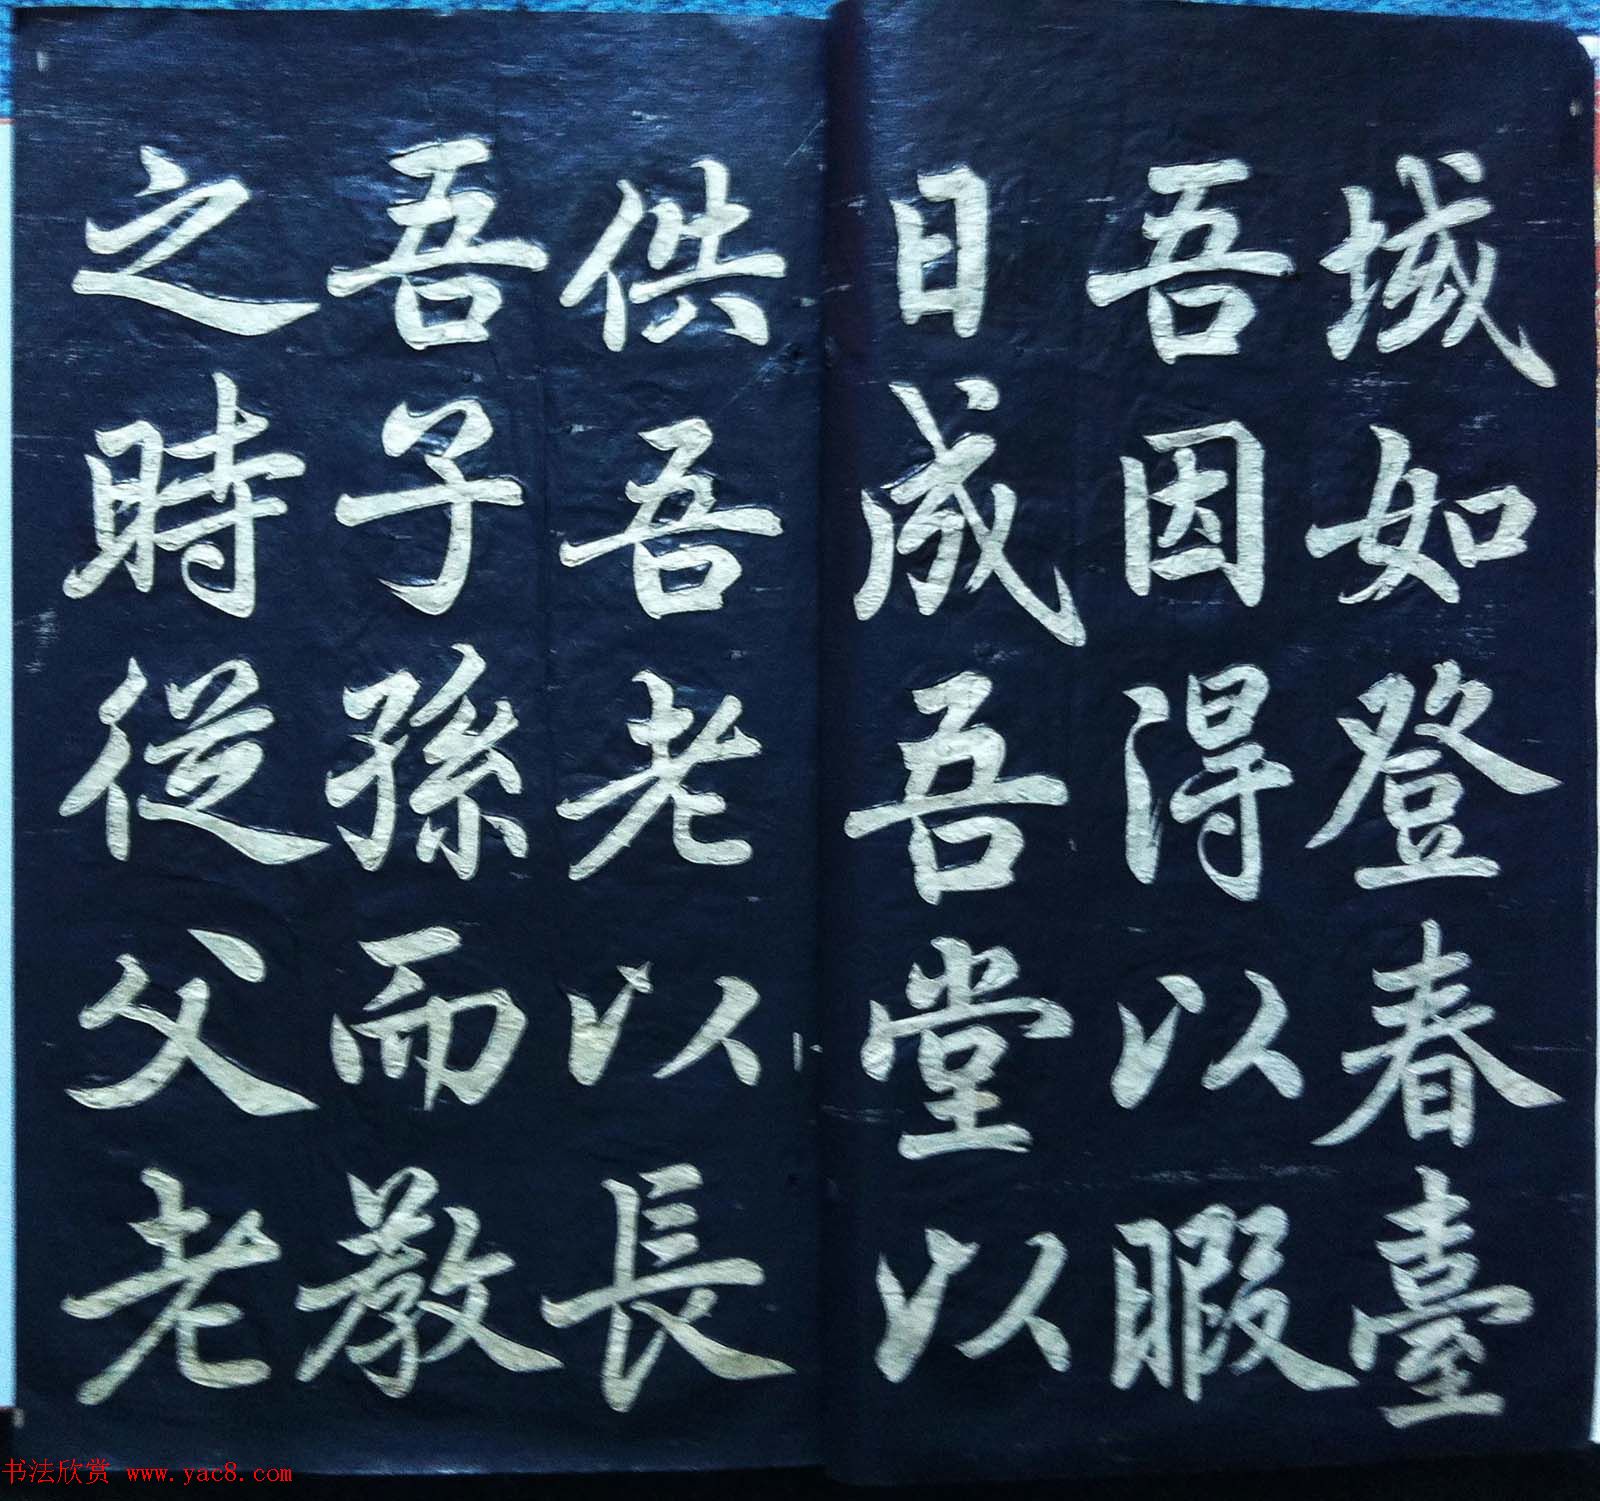 域如登春臺
吾因得以暇
日成吾堂以
供吾老以長
吾子孫而教
之時從父老
书法欣赏 www.yac8.com